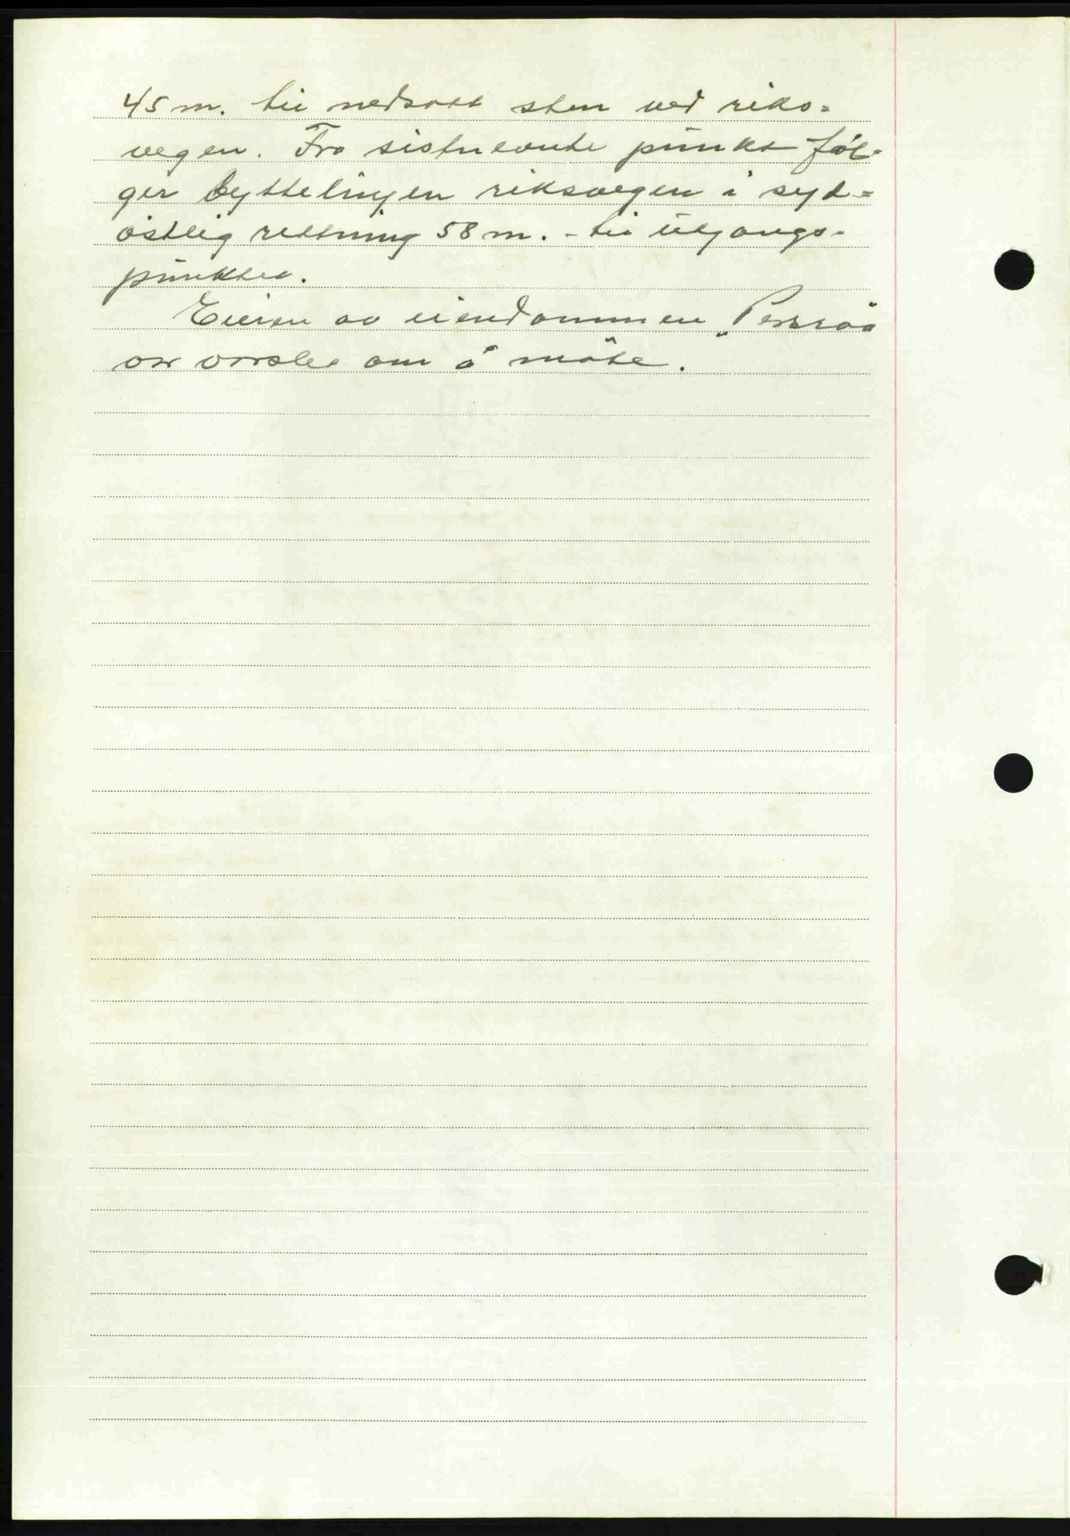 45 m. til nedsatt sten ved riks=
vegen. Fra sistnevnte punkt føl-
ger byttelinjen riksvegen i syd=
østlig rettning 58 m. - til utgangs-
punktet.
Eieren av eiendommen „
var varslet om å møte.